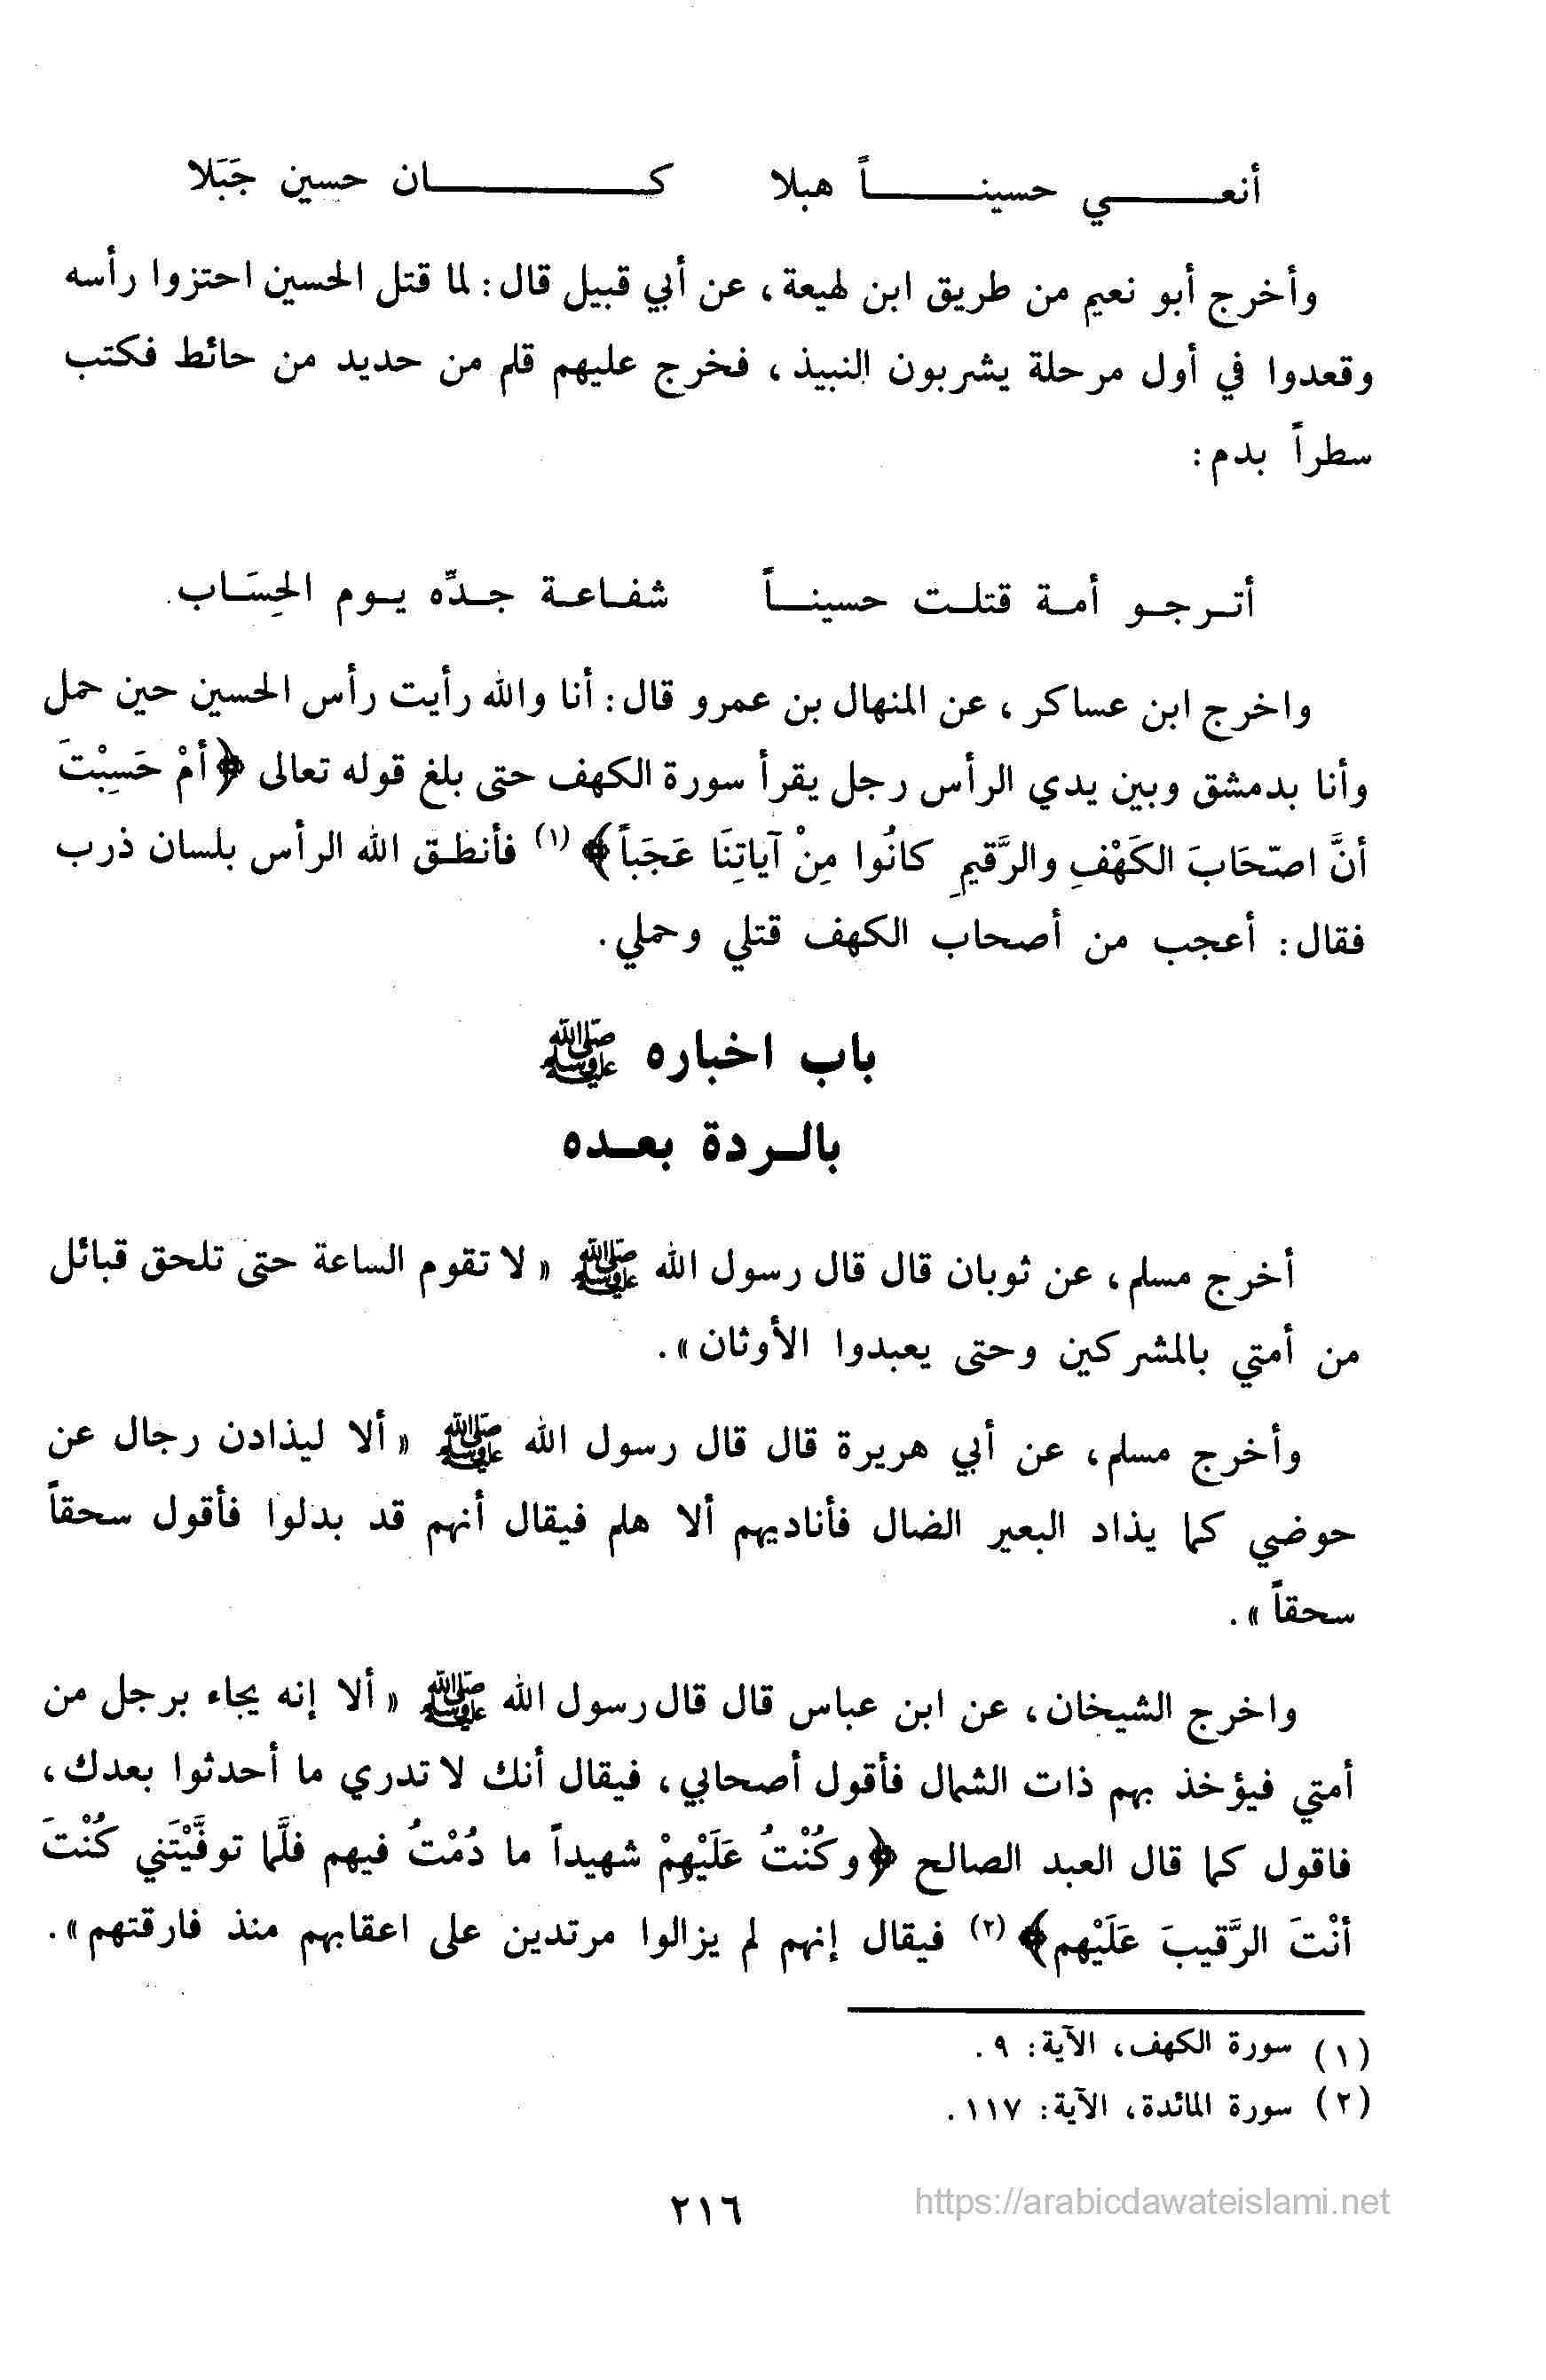 أنعي حسيناً هبلا كان حسين جَبَلا
وأخرج أبو نعيم من طريق ابن لهيعة، عن أبي قبيل قال: لما قتل الحسين احتزوا رأسه
وقعدوا في أول مرحلة يشربون النبيذ، فخرج عليهم قلم من حديد من حائط فكتب
سطراً بدم:
أترجو أمة قتلت حسيناً شفاعة جدِّه يوم الحِسَاب.
واخرج ابن عساكر، عن المنهال بن عمرو قال: أنا والله رأيت رأس الحسين حين حمل
وأنا بدمشق وبين يدي الرأس رجل يقرأ سورة الكهف حتى بلغ قوله تعالى ﴿أمْ حَسِبْتَ
أنَّ اصّحَابَ الكَهْفِ والرَّقيمِ كانُوا مِنْ آياتِنَا عَجَباً﴾ (١) فأنطق الله الرأس بلسان ذرب
فقال: أعجب من أصحاب الكهف قتلي وحملي.
باب اخباره ﷺ
بالردة بعده
أخرج مسلم، عن ثوبان قال قال رسول الله ﷺ «لا تقوم الساعة حتى تلحق قبائل
من أمتي بالمشركين وحتى يعبدوا الأوثان».
وأخرج مسلم، عن أبي هريرة قال قال رسول الله ﷺ «ألا ليذادن رجال عن
حوضي كما يذاد البعير الضال فأناديهم ألا هلم فيقال أنهم قد بدلوا فأقول سحقاً
سحقاً».
واخرج الشيخان، عن ابن عباس قال قال رسول الله ﷺ «ألا إنه يجاء برجل من
أمتي فيؤخذ بهم ذات الشمال فأقول أصحابي، فيقال أنك لا تدري ما أحدثوا بعدك،
فاقول كما قال العبد الصالح ﴿وكُنْتُ عَلَيْهِمْ شهيداً ما دُمْتُ فيهم فلَّما توفَّيْتَني كُنْتَ
أنْتَ الرَّقيبَ عَلَيْهم﴾ (٢) فيقال إنهم لم يزالوا مرتدين على اعقابهم منذ فارقتهم».
(١) سورة الكهف، الآية: ٩.
(٢) سورة المائدة، الآية: ١١٧.
٢١٦
https://arabicdawateislami.net